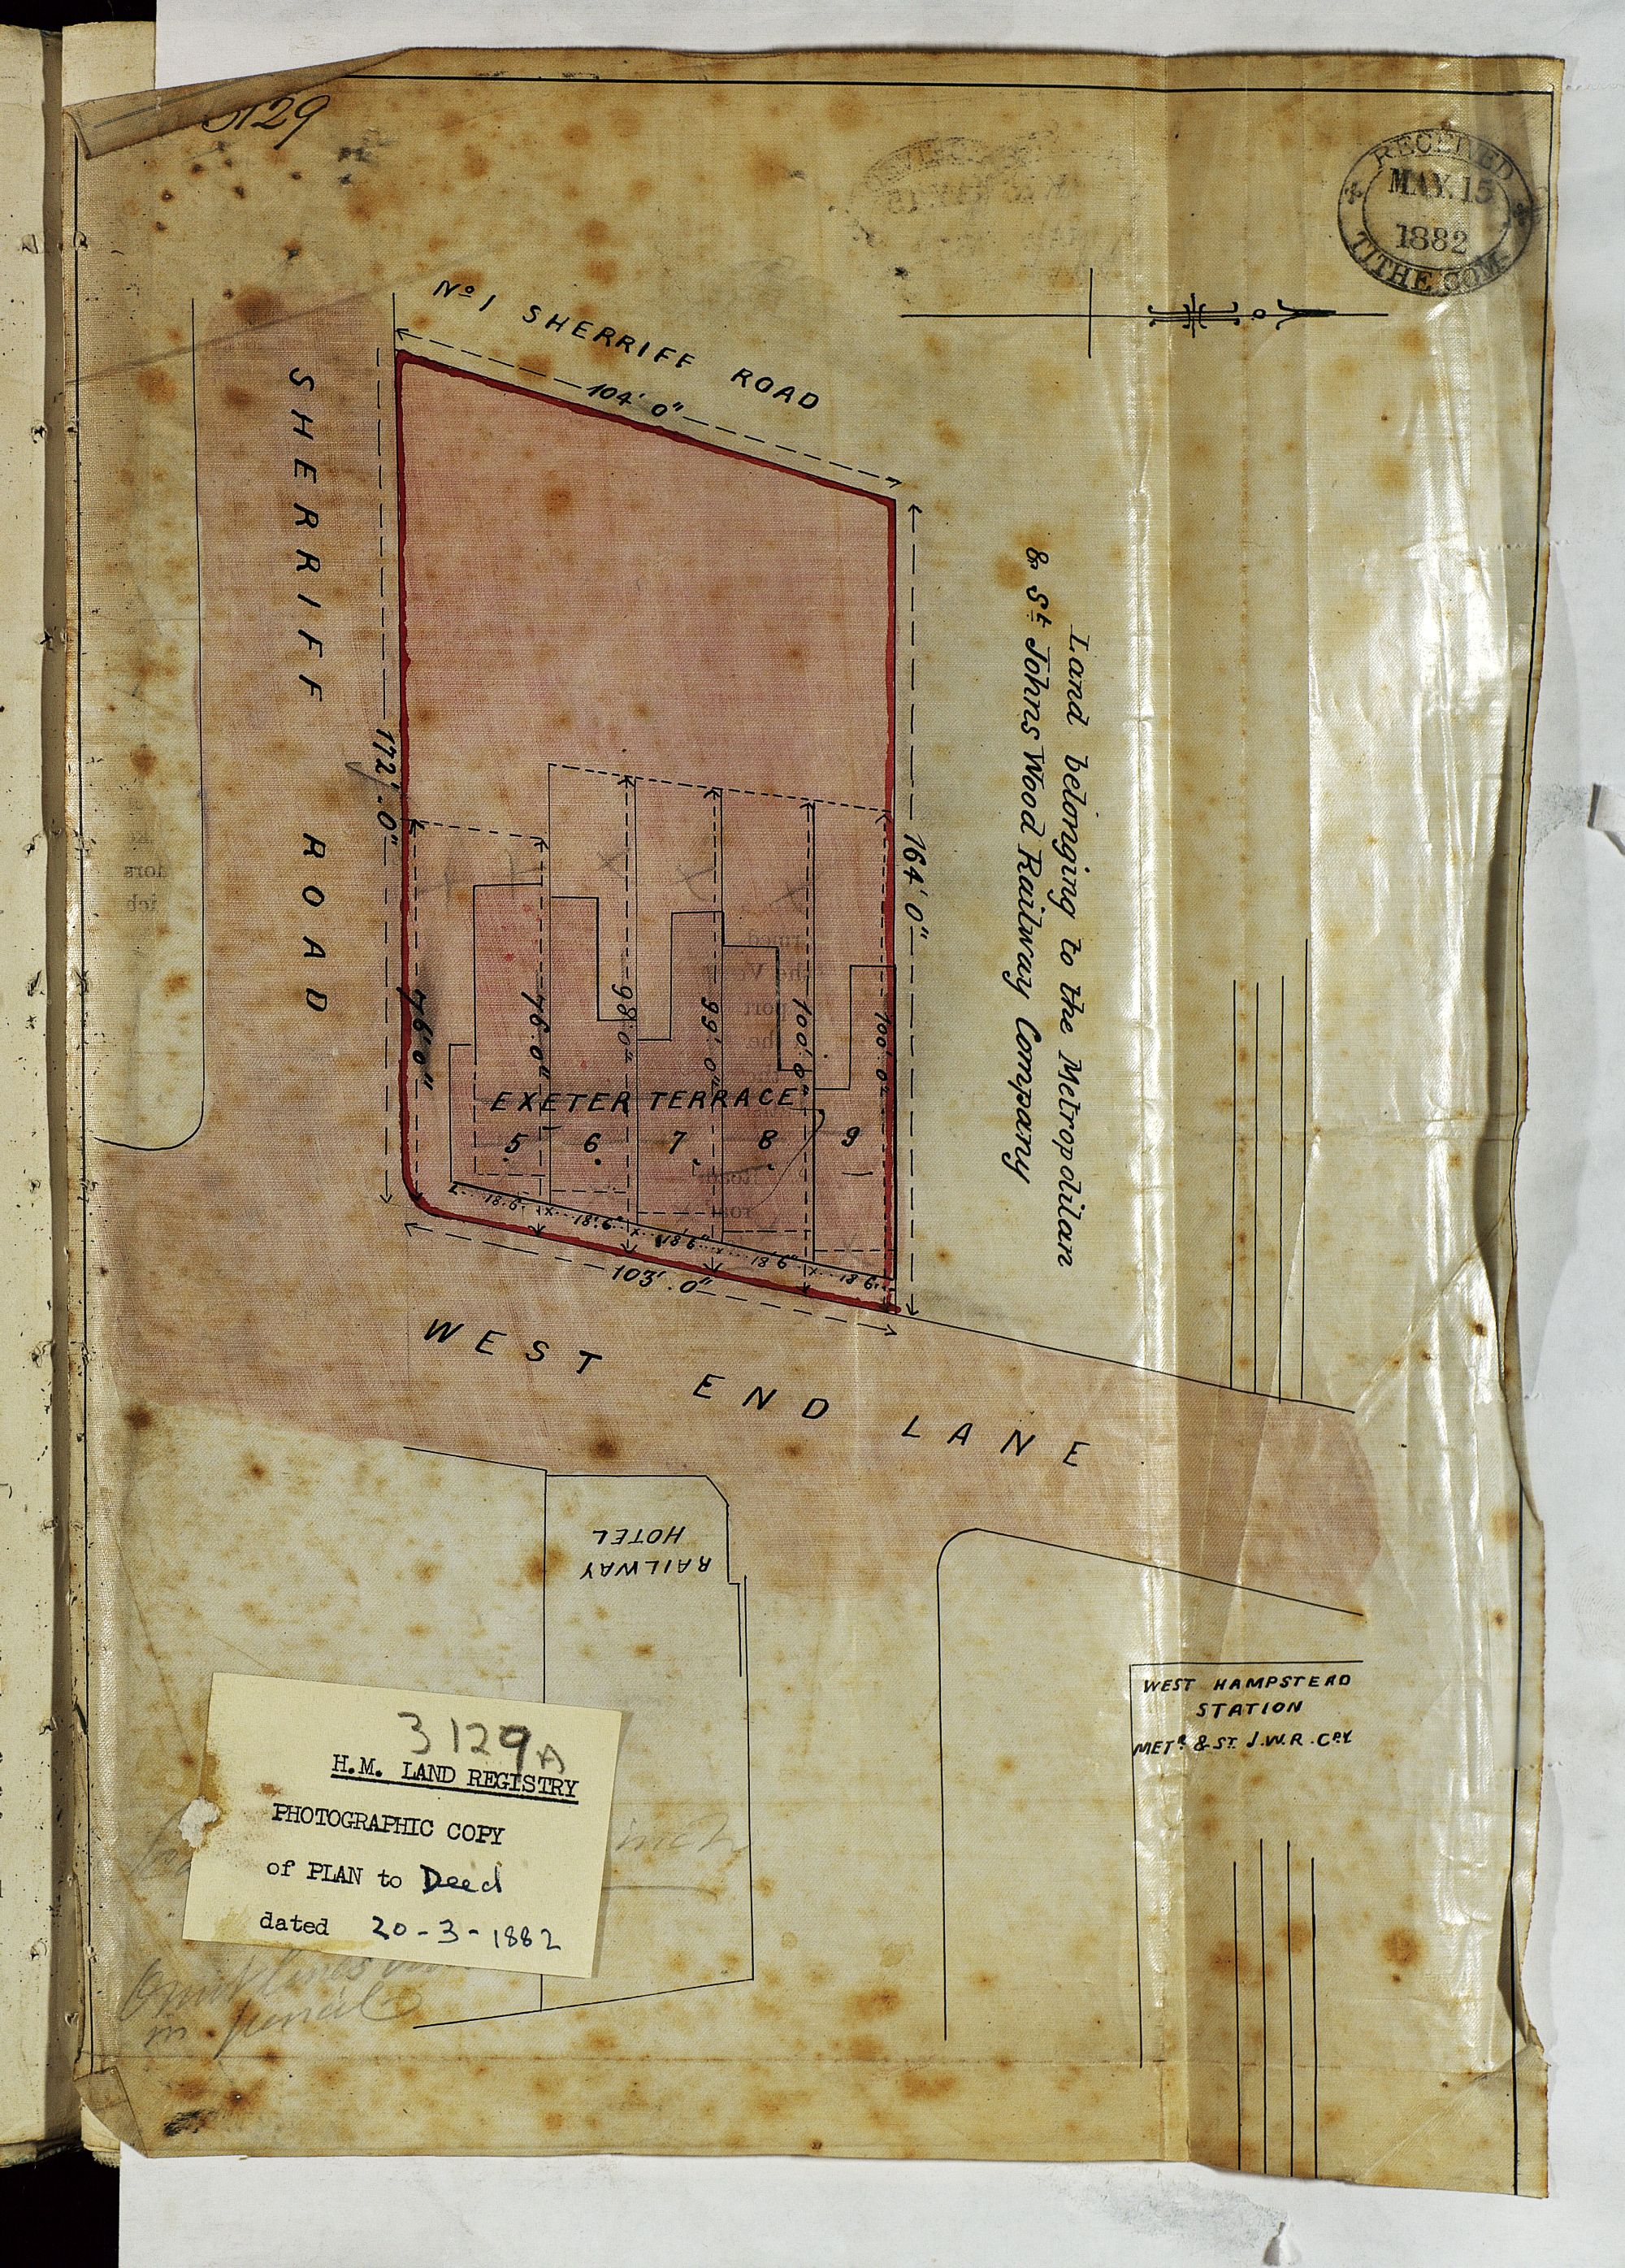 3129
RECEIVED
MAY.15
1882
TITHE.COM.
Nº 1 SHERRIFF ROAD
104' 0"
SHERRIFF ROAD
172'.0"
164' 0"
Land belonging to the Metropolitan
& St. Johns Wood Railway Company
76'.0"
76'.0"
98'.0"
99'.0"
100'.0"
100'.0"
EXETER TERRACE
5 6 7 8 9
18.6" 18'.6" 18.6" 18.6" 18.6"
103'.0"
WEST END LANE
RAILWAY
HOTEL
WEST HAMPSTEAD
STATION
METR. & ST. J.W.R. CPY
3129A
H.M. LAND REGISTRY
PHOTOGRAPHIC COPY
of PLAN to Deed
dated 20-3-1882
Omit lines
in pencil